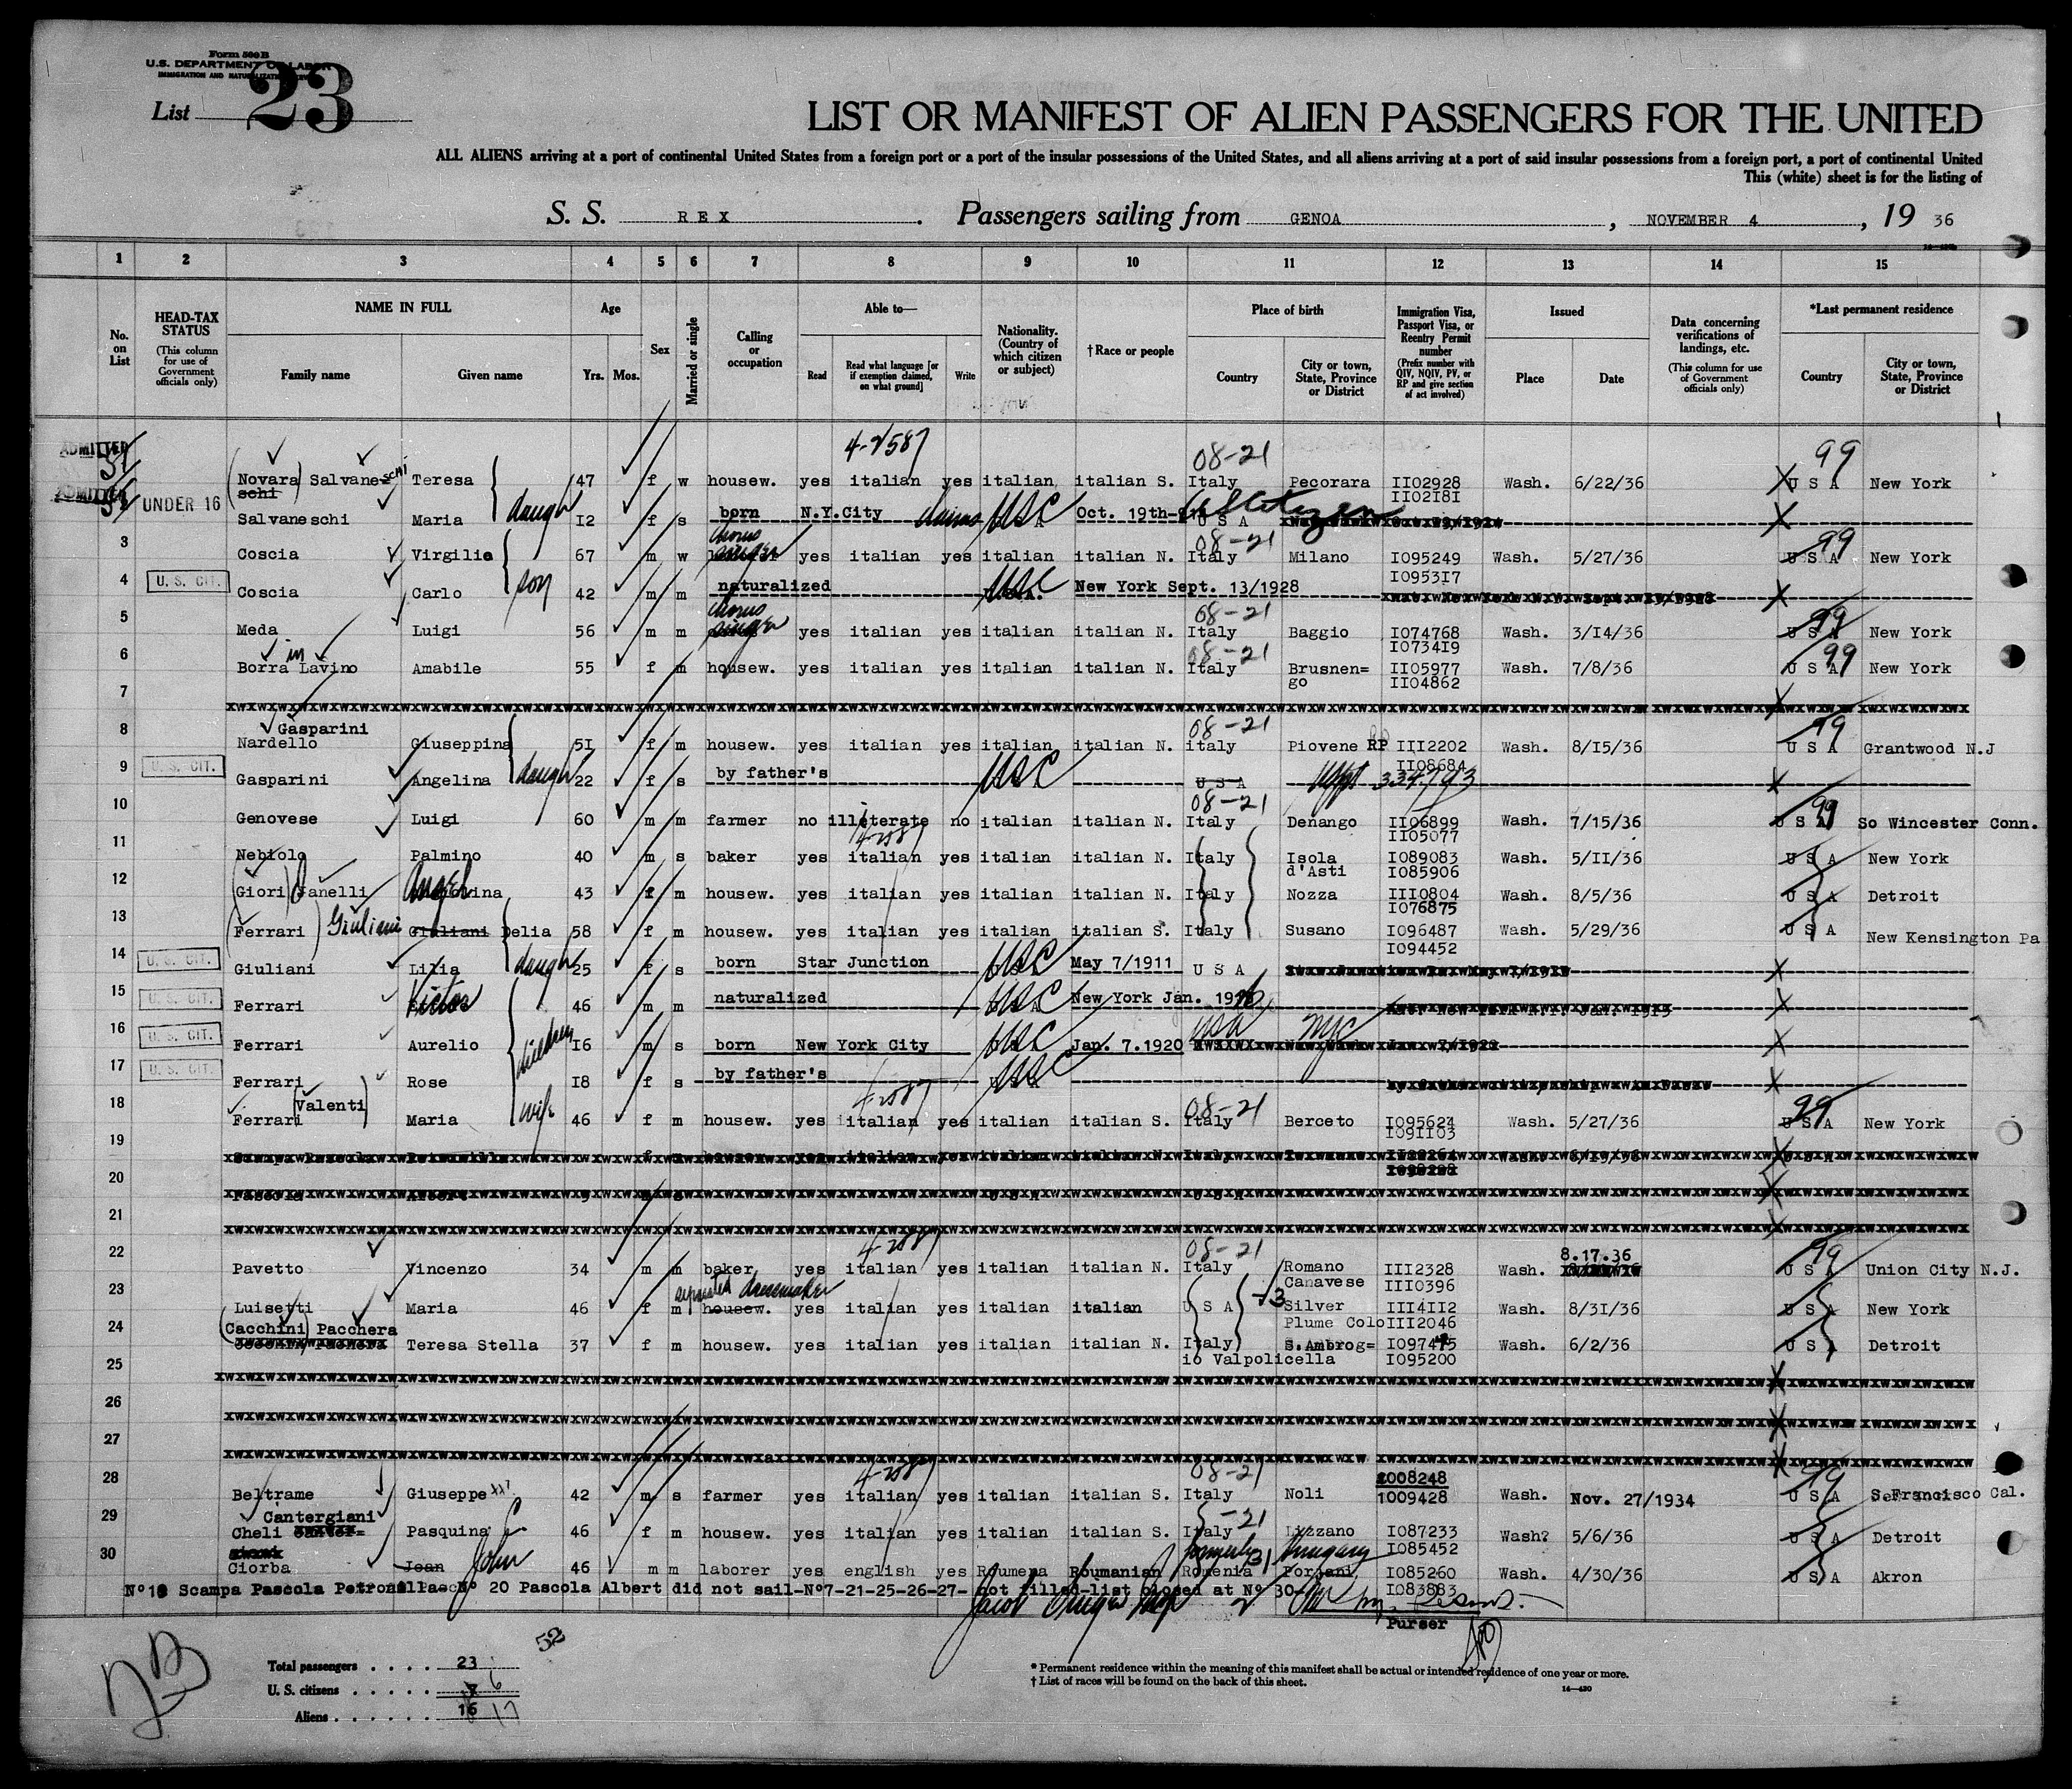 Form 500B
U.S. DEPARTMENT OF LABOR
IMMIGRATION AND NATURALIZATION SERVICE
List 23
LIST OR MANIFEST OF ALIEN PASSENGERS FOR THE UNITED
ALL ALIENS arriving at a port of continental United States from a foreign port or a port of the insular possessions of the United States, and all aliens arriving at a port of said insular possessions from a foreign port, a port of continental United
This (white) sheet is for the listing of
S. S. REX. Passengers sailing from GENOA, NOVEMBER 4, 19 36
1 2 3 4 5 6 7 8 9 10 11 12 13 14 15
No. on List
HEAD-TAX STATUS (This column for use of Government officials only)
NAME IN FULL Family name Given name
Age Yrs. Mos.
Sex
Married or single
Calling or occupation
Able to— Read Read what language [or if exemption claimed, on what ground] Write
Nationality. (Country of which citizen or subject)
†Race or people
Place of birth Country City or town, State, Province or District
Immigration Visa, Passport Visa, or Reentry Permit number (Prefix number with QIV, NQIV, PV, or RP and give section of act involved)
Issued Place Date
Data concerning verifications of landings, etc. (This column for use of Government officials only)
*Last permanent residence Country City or town, State, Province or District
ADMITTED 08-21 99
(Novara) Salvaneschi Teresa 47 f w housew. yes italian yes italian italian S. Italy Pecorara II02928 Wash. 6/22/36 U S A New York
II02I8I
ADMITTED UNDER 16 Salvaneschi Maria daugh I2 f s born N.Y.City claims USC Oct. 19th- U S A US Citizen
08-21 99
3 Coscia Virgilio 67 m w chorus singer yes italian yes italian italian N. Italy Milano I095249 Wash. 5/27/36 U S A New York
I0953I7
4 U. S. CIT. Coscia Carlo son 42 m m naturalized USC New York Sept. 13/1928
08-21 99
5 Meda Luigi 56 m m chorus singer yes italian yes italian italian N. Italy Baggio I074768 Wash. 3/I4/36 U S A New York
I0734I9
08-21 99
6 Borra in Lavino Amabile 55 f m housew. yes italian yes italian italian N. Italy Brusnen=go II05977 Wash. 7/8/36 U S A New York
II04862
7
08-21 99
8 Nardello Gasparini Giuseppina 5I f m housew. yes italian yes italian italian N. italy Piovene RP III2202 Wash. 8/I5/36 U S A Grantwood N.J
II08684
9 U. S. CIT. Gasparini Angelina daugh 22 f s by father's USC U S A 334793
08-21 99
10 Genovese Luigi 60 m m farmer no illiterate no italian italian N. Italy Denango II06899 Wash. 7/I5/36 U S A So Wincester Conn.
II05077
11 Nebiolo Palmino 40 m s baker yes italian yes italian italian N. Italy Isola d'Asti I089083 Wash. 5/II/36 U S A New York
I085906
12 (Giori) Janelli Angelina 43 f m housew. yes italian yes italian italian N. Italy Nozza III0804 Wash. 8/5/36 U S A Detroit
I076875
13 (Ferrari) Giuliani Giuliani Delia 58 f m housew. yes italian yes italian italian S. Italy Susano I096487 Wash. 5/29/36 U S A New Kensington Pa
I094452
14 U. S. CIT. Giuliani Lilia daugh 25 f s born Star Junction USC May 7/1911 U S A
15 U. S. CIT. Ferrari Victor 46 m m naturalized USC New York Jan.
16 U. S. CIT. Ferrari Aurelio children I6 m s born New York City USC Jan. 7.1920 USA NYC
17 U. S. CIT. Ferrari Rose I8 f s by father's USC
08-21 99
18 Ferrari (Valenti) Maria wife 46 f m housew. yes italian yes italian italian S. Italy Berceto I095624 Wash. 5/27/36 U S A New York
I09II03
19
20
21
08-21 8.17.36 99
22 Pavetto Vincenzo 34 m m baker yes italian yes italian italian N. Italy Romano Canavese III2328 Wash. U S A Union City N.J.
III0396
23 Luisetti Maria 46 f m separated housew. dressmaker yes italian yes italian italian U S A Silver Plume Colo III4II2 Wash. 8/3I/36 U S A New York
III2046
24 (Cacchini) Pacchera Teresa Stella 37 f m housew. yes italian yes italian italian N. Italy S.Ambrog=io Valpolicella Wash. 6/2/36 U S A Detroit
I095200
25
26
27
08-21 1008248 99
28 Beltrame Giuseppe 42 m s farmer yes italian yes italian italian S. Italy Noli 1009428 Wash. Nov. 27/1934 U S A S.Francisco Cal.
29 Cheli Cantergiani Pasquina 46 f m housew. yes italian yes italian italian S. Italy Lizzano I087233 Wash? 5/6/36 U S A Detroit
I085452
formerly Hungary
30 Ciorba Jean John 46 m m laborer yes english yes Roumena Roumanian Romenia I085260 Wash. 4/30/36 U S A Akron
I083883
N°19 Scampa Pascola Petronilla N° 20 Pascola Albert did not sail-N°7-21-25-26-27- not filled-list closed at N° 30-
Purser
52
Total passengers . . . . 23
U. S. citizens . . . . . 6
Aliens . . . . . . 16 17
* Permanent residence within the meaning of this manifest shall be actual or intended residence of one year or more.
† List of races will be found on the back of this sheet.